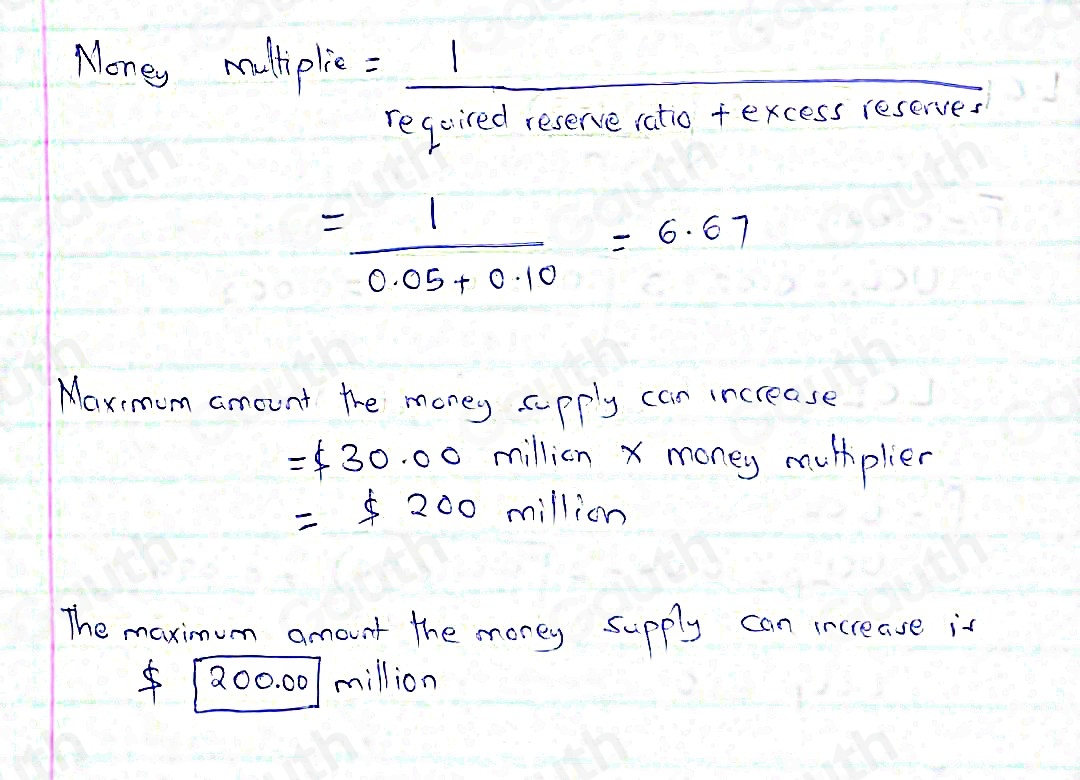 Money multiplie = 1
required reserve ratio + excess reserves
= 1
0.05 + 0.10
= 6.67
Maximum amount the money supply can increase
= $30.00 million x money multiplier
= $ 200 million
The maximum amount the money supply can increase is
$ 200.00 million